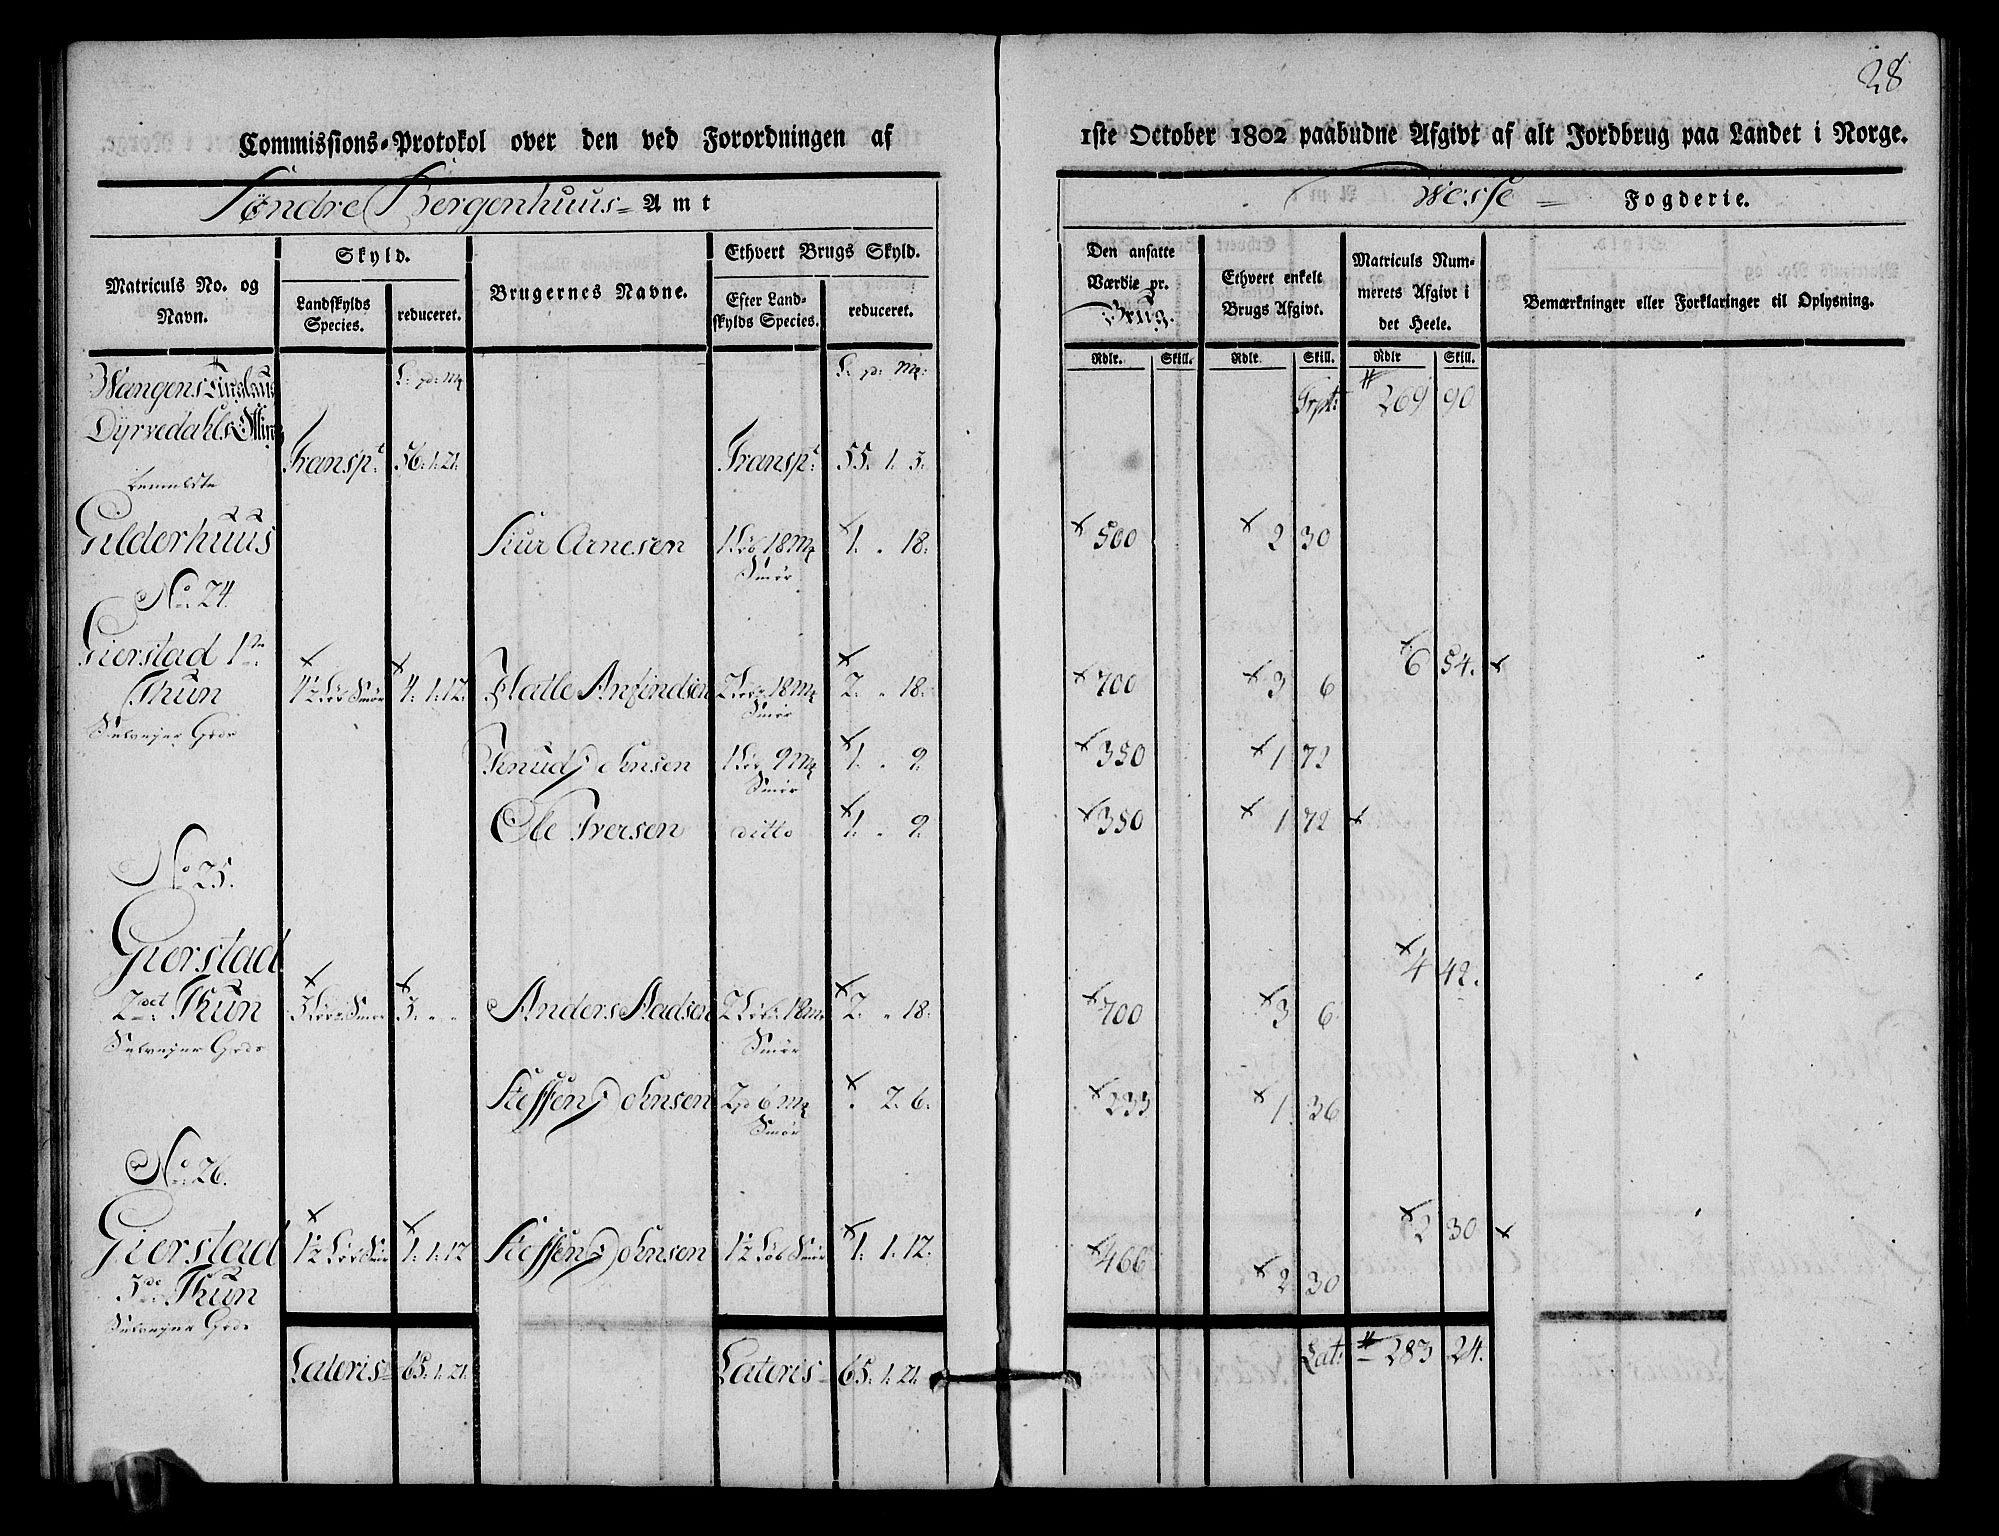 28
Commissions-Protokol over den ved Forordningen af 1ste October 1802 paabudne Afgivt af alt Jordbrug paa Landet i Norge.
Søndre Bergenhuus Amt
Wosse Fogderie.
Matriculs No. og Navn.
Skyld.
Landskylds Species.
reduceret.
Brugernes Navne.
Ethvert Brugs Skyld.
Efter Landskylds Species.
reduceret.
Den ansatte Værdie pr. Brug.
Ethvert enkelt Brugs Afgivt.
Matriculs Nummerets Afgivt i det Heele.
Bemærkninger eller Forklaringer til Oplysning.
Rdlr. Skill. Rdlr. Skill. Rdlr Skill.
Wangens
Dyrvedahls Otting
L: pd: mq L: pd: mq:
Trpt: 269 90
Transpt: 56. 1. 21. Transpt: 55. 1. 3.
benældte
Gilderhuus Siur Arnesen 1 Løb 18 mq Smør 1. „ 18. 500 2 30
No. 24.
Gierstad 1te Thun 4½ Løb Smør 4. 1. 12. Hatle Anfindsen 2 Løb 18 mq Smør 2. „ 18. 700 3 6 6 54.
Selvejer Gods
Knud Johnsen 1 Løb 9 mq Smør 1. „ 9. 350 1 72
Ole Iversen ditto 1. „ 9. 350 1 72
No. 25.
Gierstad 2det Thun 3 Løber Smør 3. „ „ Anders Aadsen 2 Løb 18 mq Smør 2. „ 18. 700 3 6 4 42.
Selvejer Gods
Steffen Johnsen 2 pd 6 mq Smør . 2. 6. 233 1 36
No. 26.
Gierstad 3de Thun 1½ Løb Smør 1. 1. 12 Steffen Johnsen 1½ Løb Smør 1. 1. 12. 466 2 30 2 30
Selvejer Gods
Lateris 65. 1. 21. Lateris 65. 1. 21. Lat: 283 24.